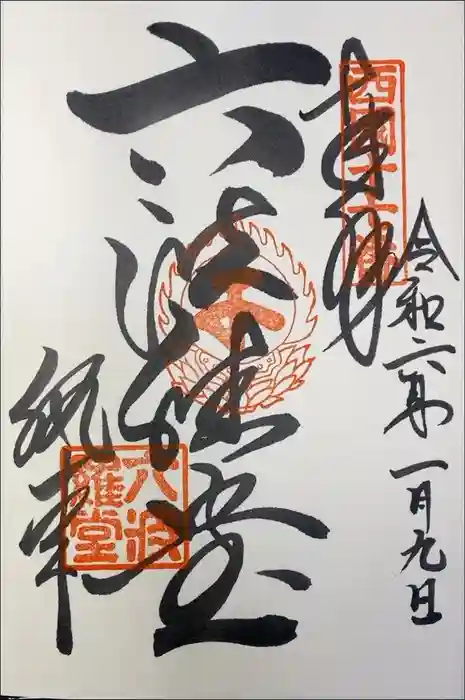 奉拝
西国十七番
令和六年一月九日
六波羅堂
六波羅堂
執事